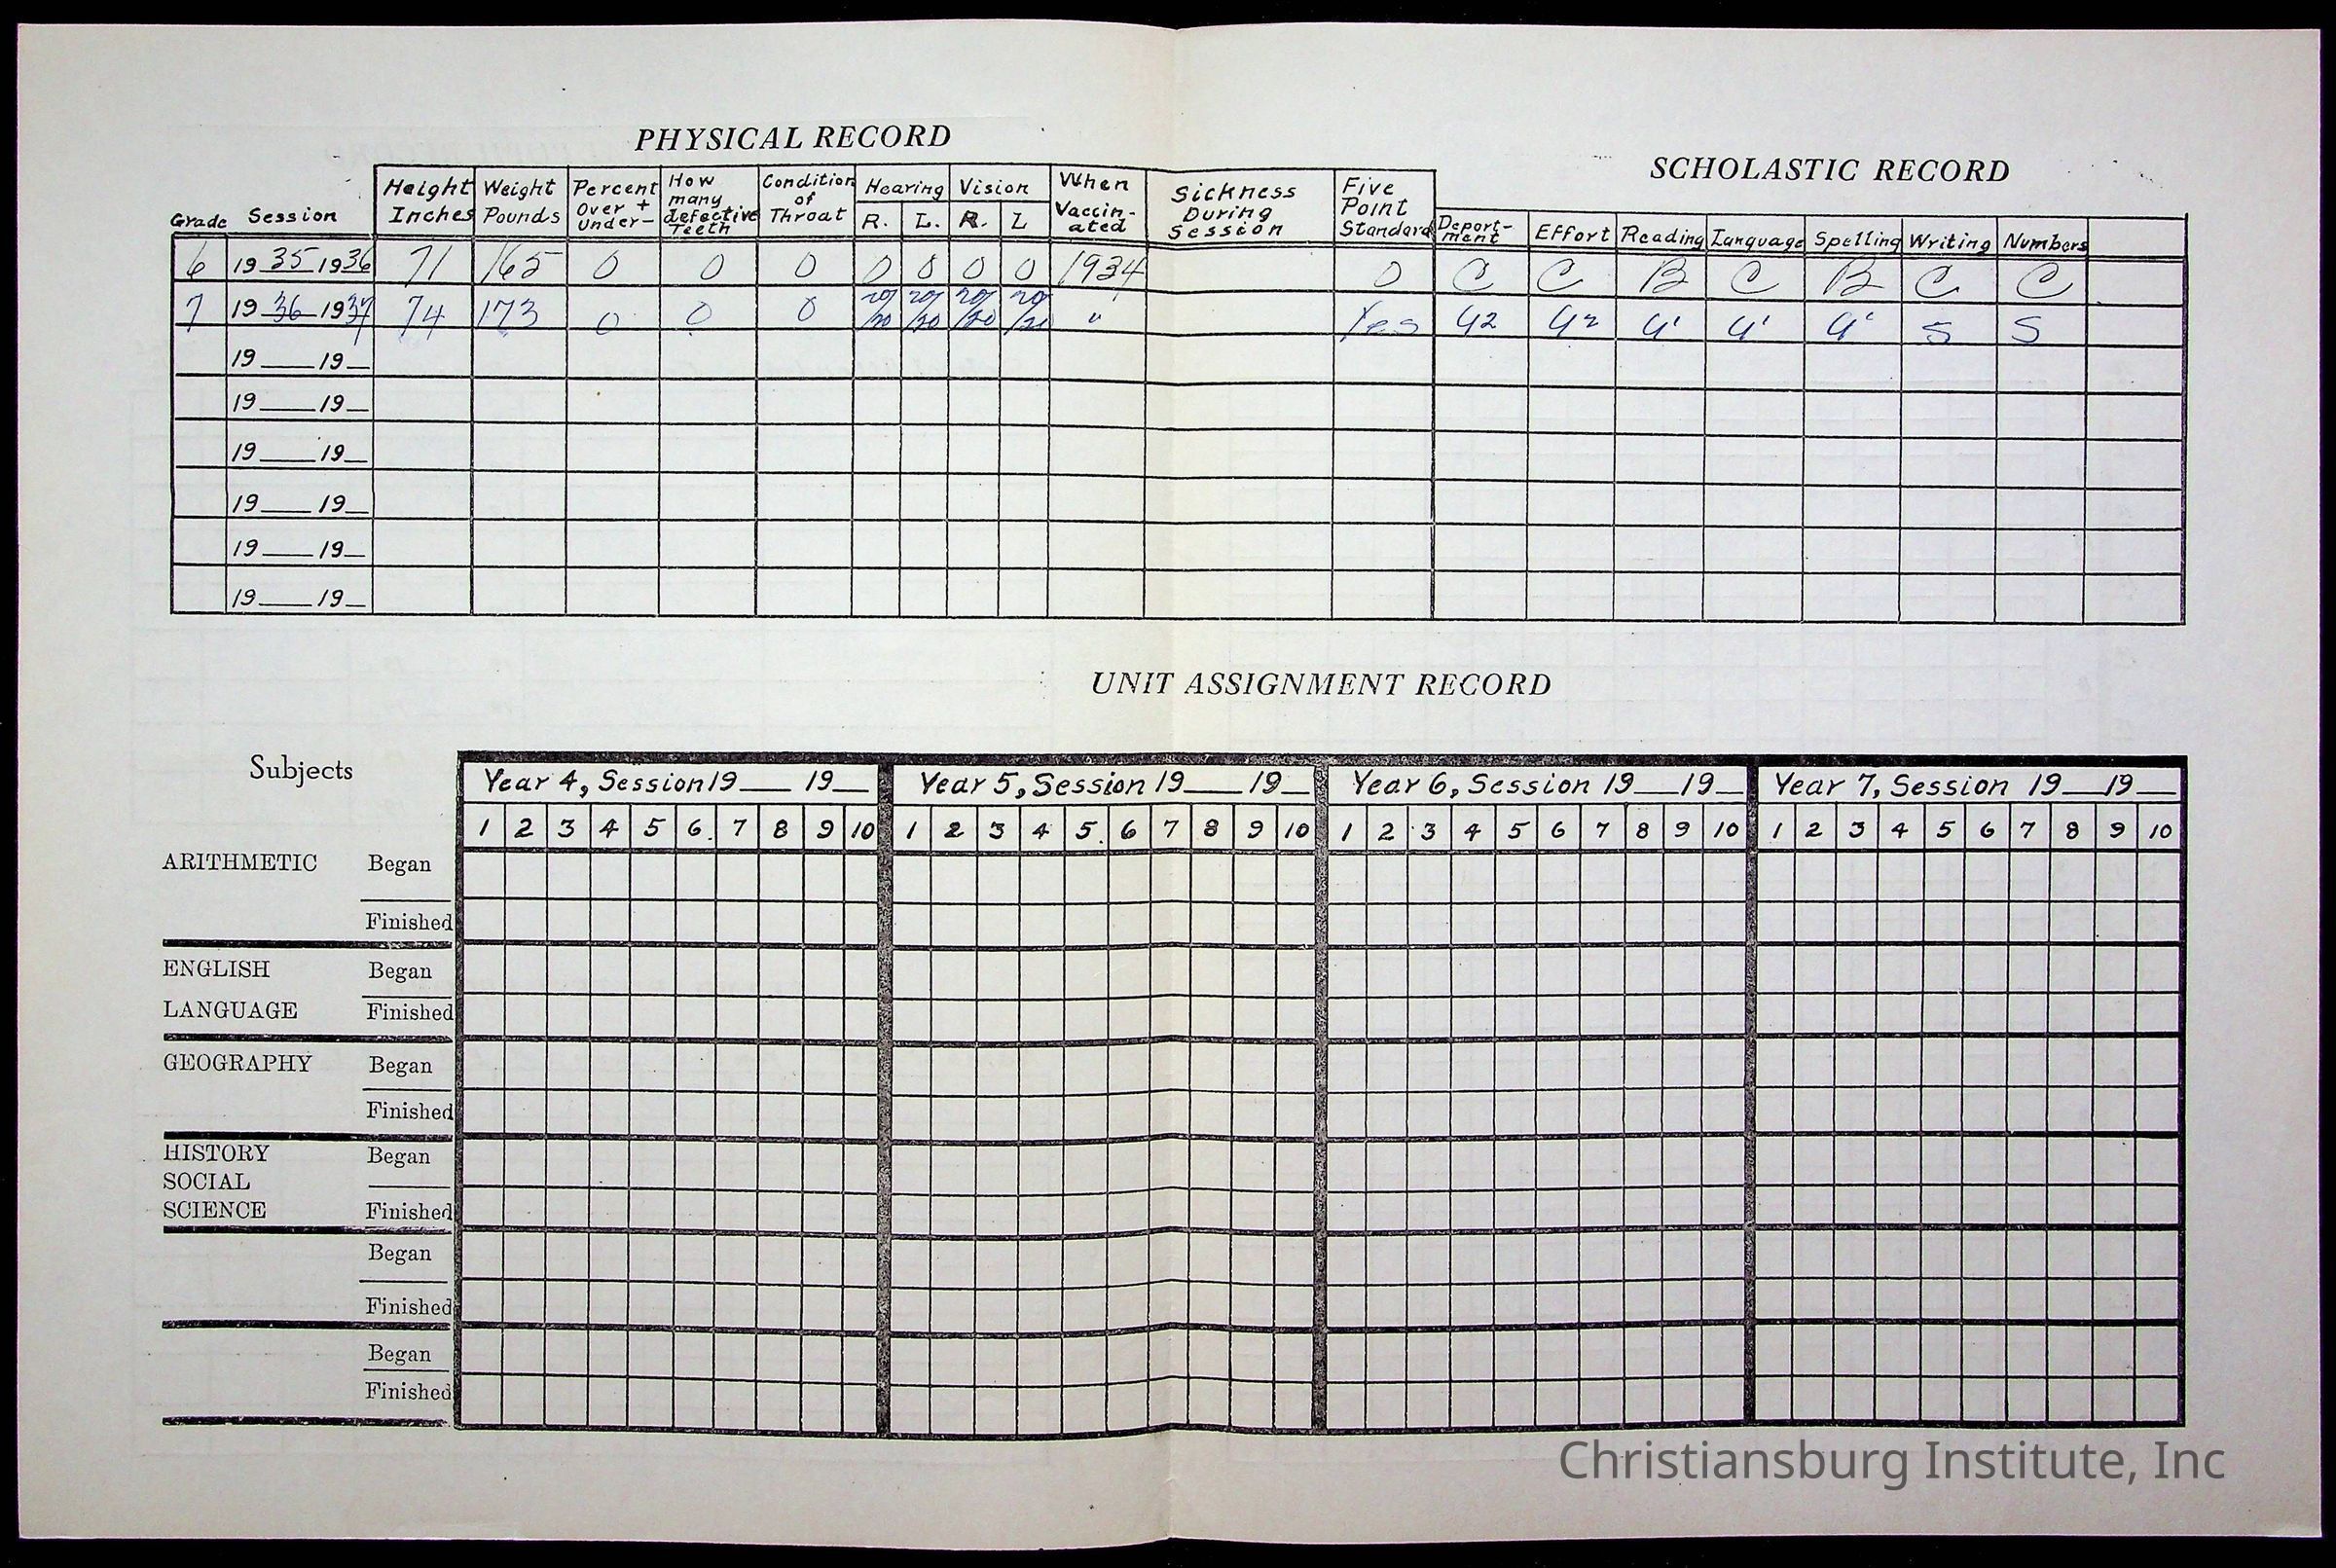 PHYSICAL RECORD
SCHOLASTIC RECORD
Grade Session Height Inches Weight Pounds Percent Over + Under- How many defective Teeth Condition of Throat Hearing R. L. Vision R. L When Vaccin-ated Sickness During Session Five Point Standard Deport-ment Effort Reading Language Spelling Writing Numbers
6 19 35 1936 71 165 0 0 0 0 0 0 0 1934 0 C C B C B C C
7 19 36 1937 74 173 0 0 0 20/20 20/20 20/20 20/20 " Yes S S
19 19
19 19
19 19
19 19
19 19
19 19
UNIT ASSIGNMENT RECORD
Subjects
Year 4, Session 19 19 Year 5, Session 19 19 Year 6, Session 19 19 Year 7, Session 19 19
1 2 3 4 5 6. 7 8 9 10 1 2 3 4 5. 6 7 8 9 10 1 2 3 4 5 6 7 8 9 10 1 2 3 4 5 6 7 8 9 10
ARITHMETIC Began
Finished
ENGLISH Began
LANGUAGE Finished
GEOGRAPHY Began
Finished
HISTORY Began
SOCIAL
SCIENCE Finished
Began
Finished
Began
Finished
Christiansburg Institute, Inc